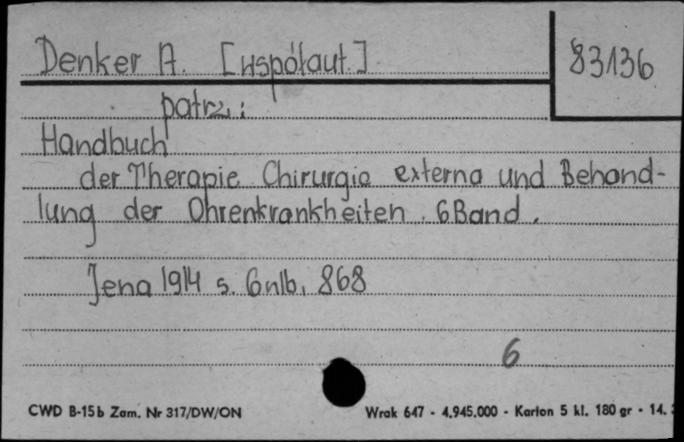 Denker A. [współaut.]
83136
patrz:
Handbuch
der Therapie Chirurgia externa und Behand-
lung der Ohrenkrankheiten. 6 Band.
Jena 1914 s. 6nlb, 868
6
CWD B-15b Zam. Nr 317/DW/ON
Wrak 647 - 4.945.000 - Karton 5 kl. 180 gr - 14.